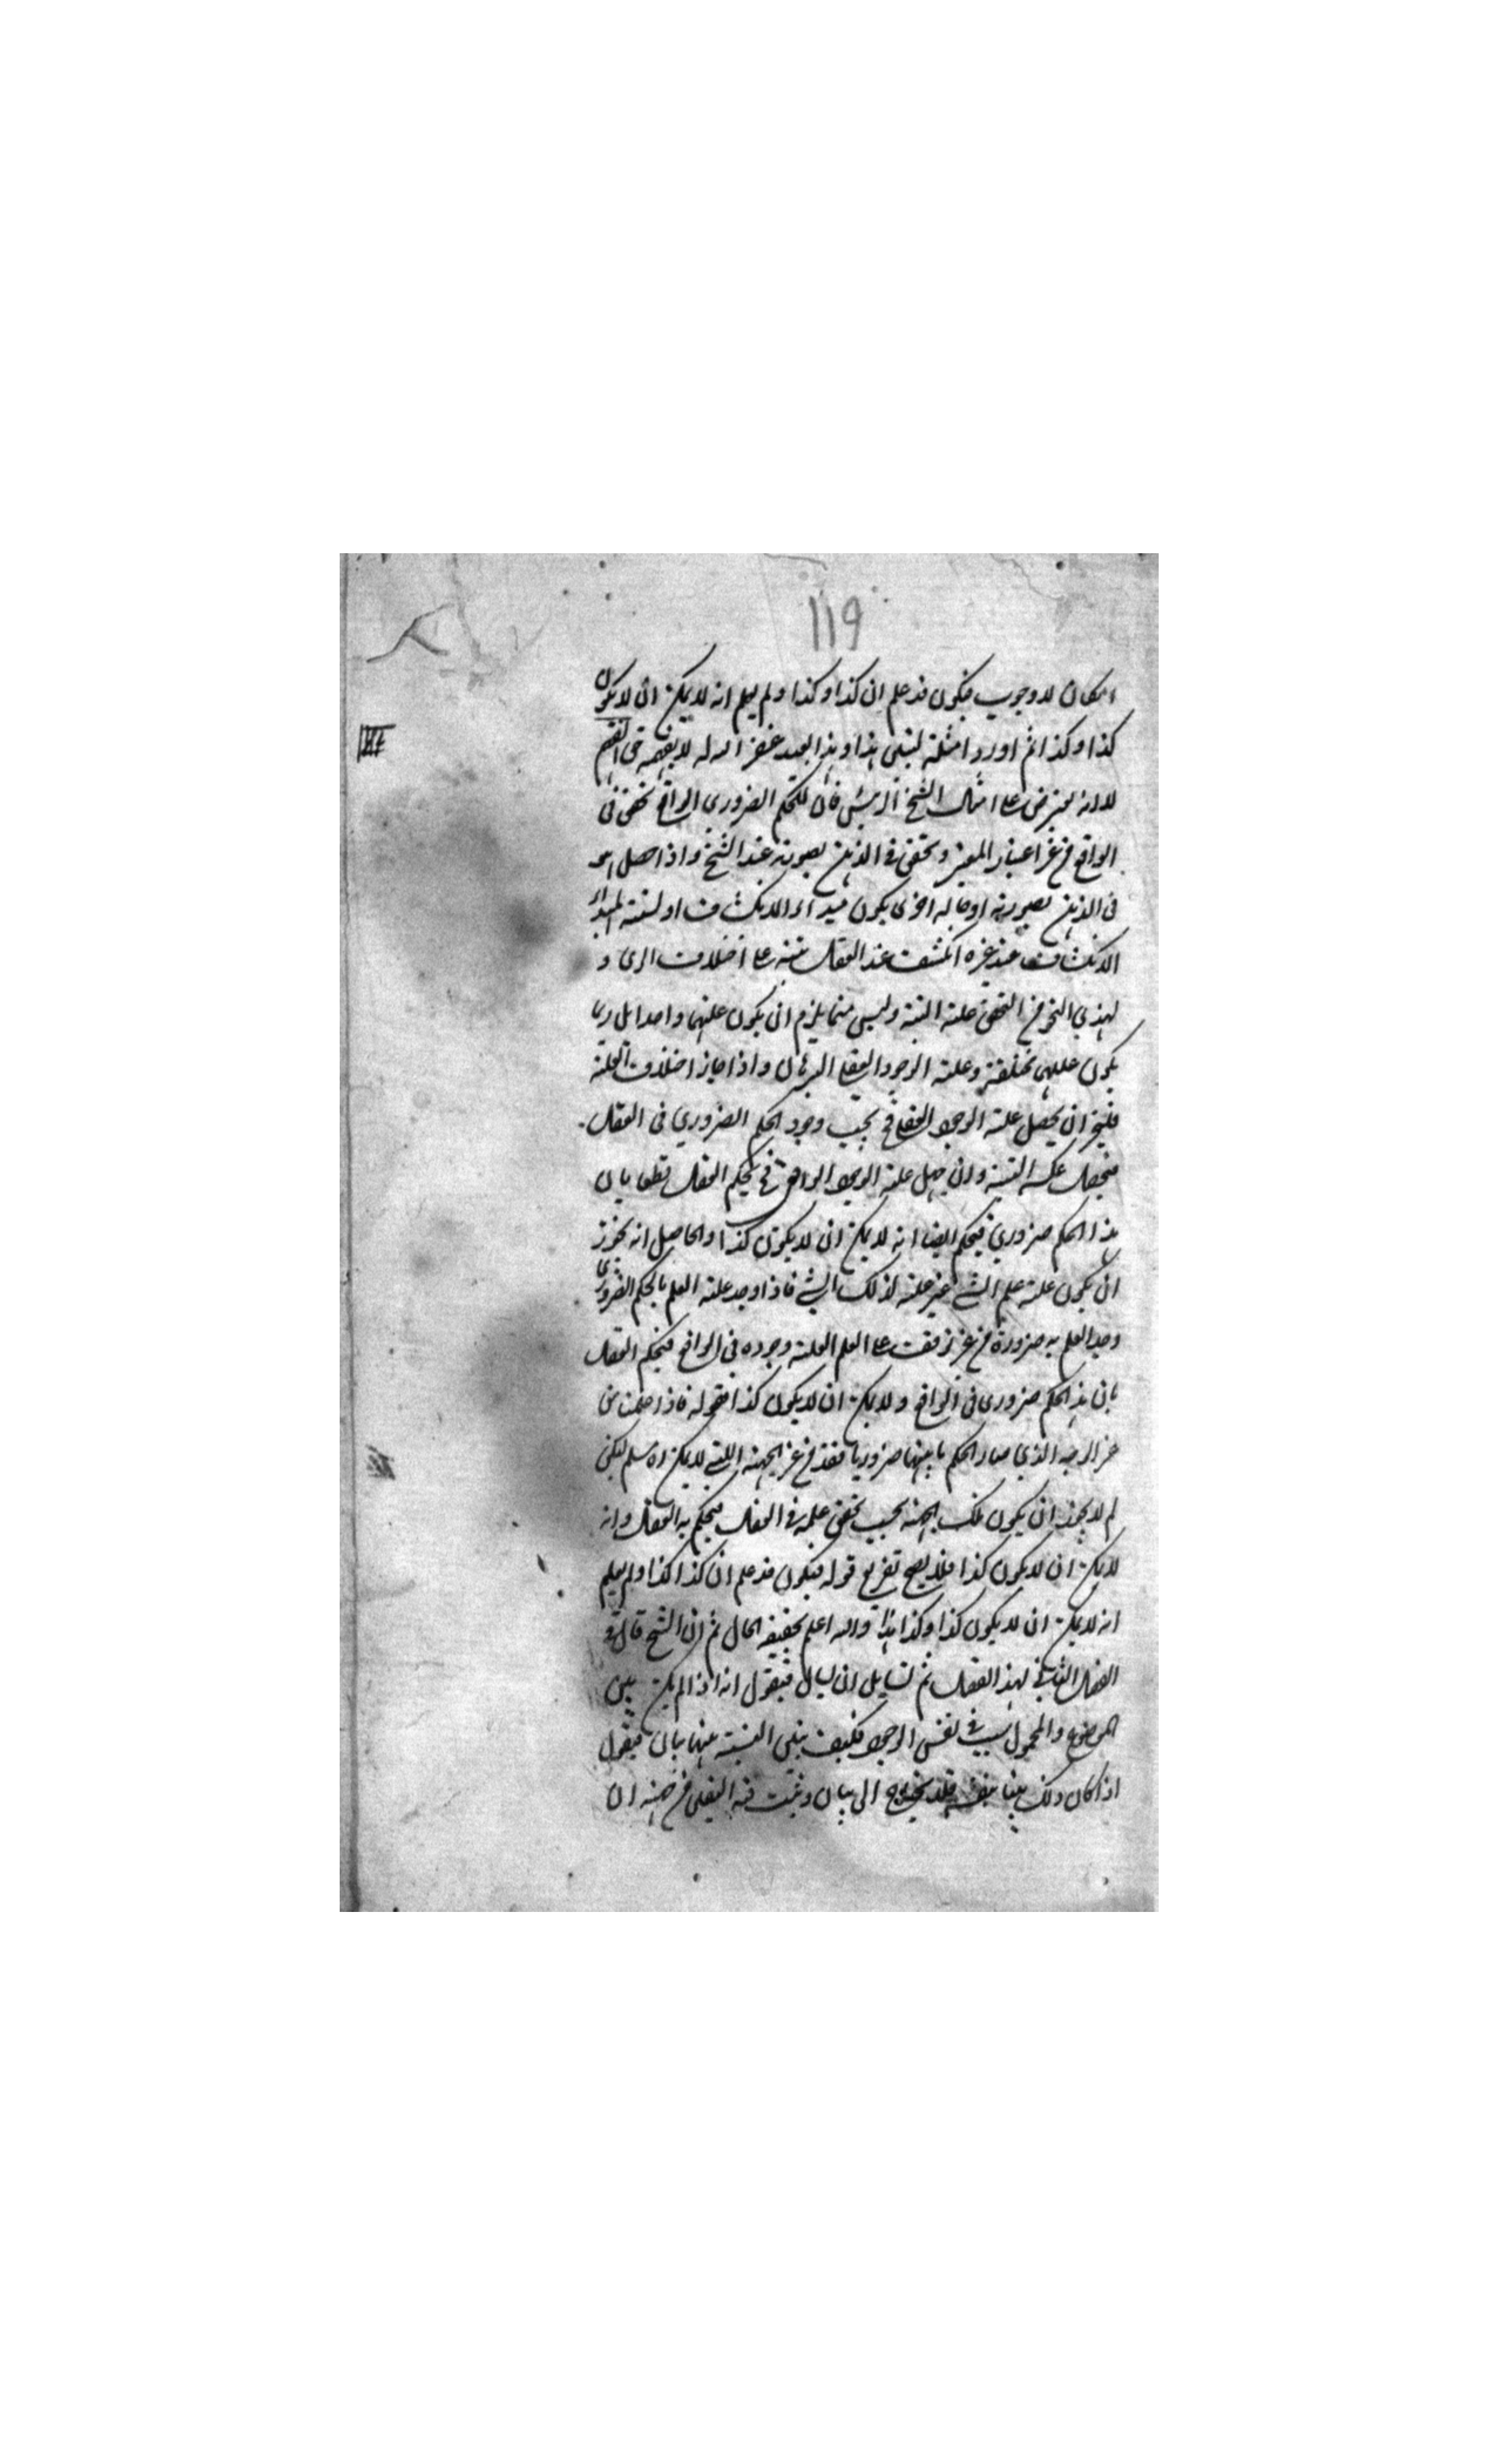 119
امكان لا وجوب فيكون قد علم ان كذا وكذا ولم يعلم انه لا يمكن ان لا يكون
كذا وكذا ثم اورد امثلة لتبين هذا وهذا العبد غفر الله له لا يفهم حق الفهم
لانه يعترض على امثال الشيخ الرئيس فان للحكم الضروري الواقع تحقق في
الواقع من غير اعتبار المعتبر وتحقق في الذهن بصورته عند الشيخ واذا حصل هو
في الذهن بصورته او حالة اخرى يكون مبداء الانكشاف او لنسبة المبداء
الانكشاف عند غيره انكشف عند العقل بتة على اختلاف الرأي و
لهذي النحو من التحقق علة البتة وليس مما يلزم ان يكون علتهما واحدا بل ربما
يكون عللهما مختلفة وعلة الوجود العقلي البرهان واذا جاز اختلاف العلة
فليجز ان يحصل علة الوجود العقلي فح يجب وجود الحكم الضروري في العقل
فيحصل علمه البتة وان جهل علة الوجود الواقعي فح يحكم العقل قطعا بان
هذا الحكم ضروري فيحكم ايضا انه لا يمكن ان لا يكون كذا والحاصل انه يجوز
ان يكون علة علم الشيء غير علة لذلك الشيء فاذا وجد علة العلم بالحكم الضروري
وجد العلم به ضرورة من غير توقف على العلم العلة وجوده في الواقع فيحكم العقل
بان هذا الحكم ضروري في الواقع ولا يمكن ان لا يكون كذا فقوله فاذا علمت من
غير الوجه الذي صار الحكم ما بينهما ضروريا فقد من غير الجهة التي لا يمكن اه مسلم لكن
لم لا يجوز ان يكون تلك الجهة بحيث تحقق علمه في العقل فيحكم به العقل وانه
لا يمكن ان لا يكون كذا فلا يصح تفريع قوله فيكون قد علم ان كذا كذا ولم يعلم
انه لا يمكن ان لا يكون كذا وكذا هذا والله اعلم بحقيقة الحال ثم ان الشيخ قال في
الفصل التالي لهذا الفصل ثم لسايل ان يسال فيقول انه اذا لم يكن بين
الموضوع والمحمول سبب في نفس الوجود فكيف يبين النسبة بينهما ببيان فيقول
اذا كان ذلك بينا بنفسه فلا يحتاج الى بيان ويثبت فيه اليقين من جهة ان